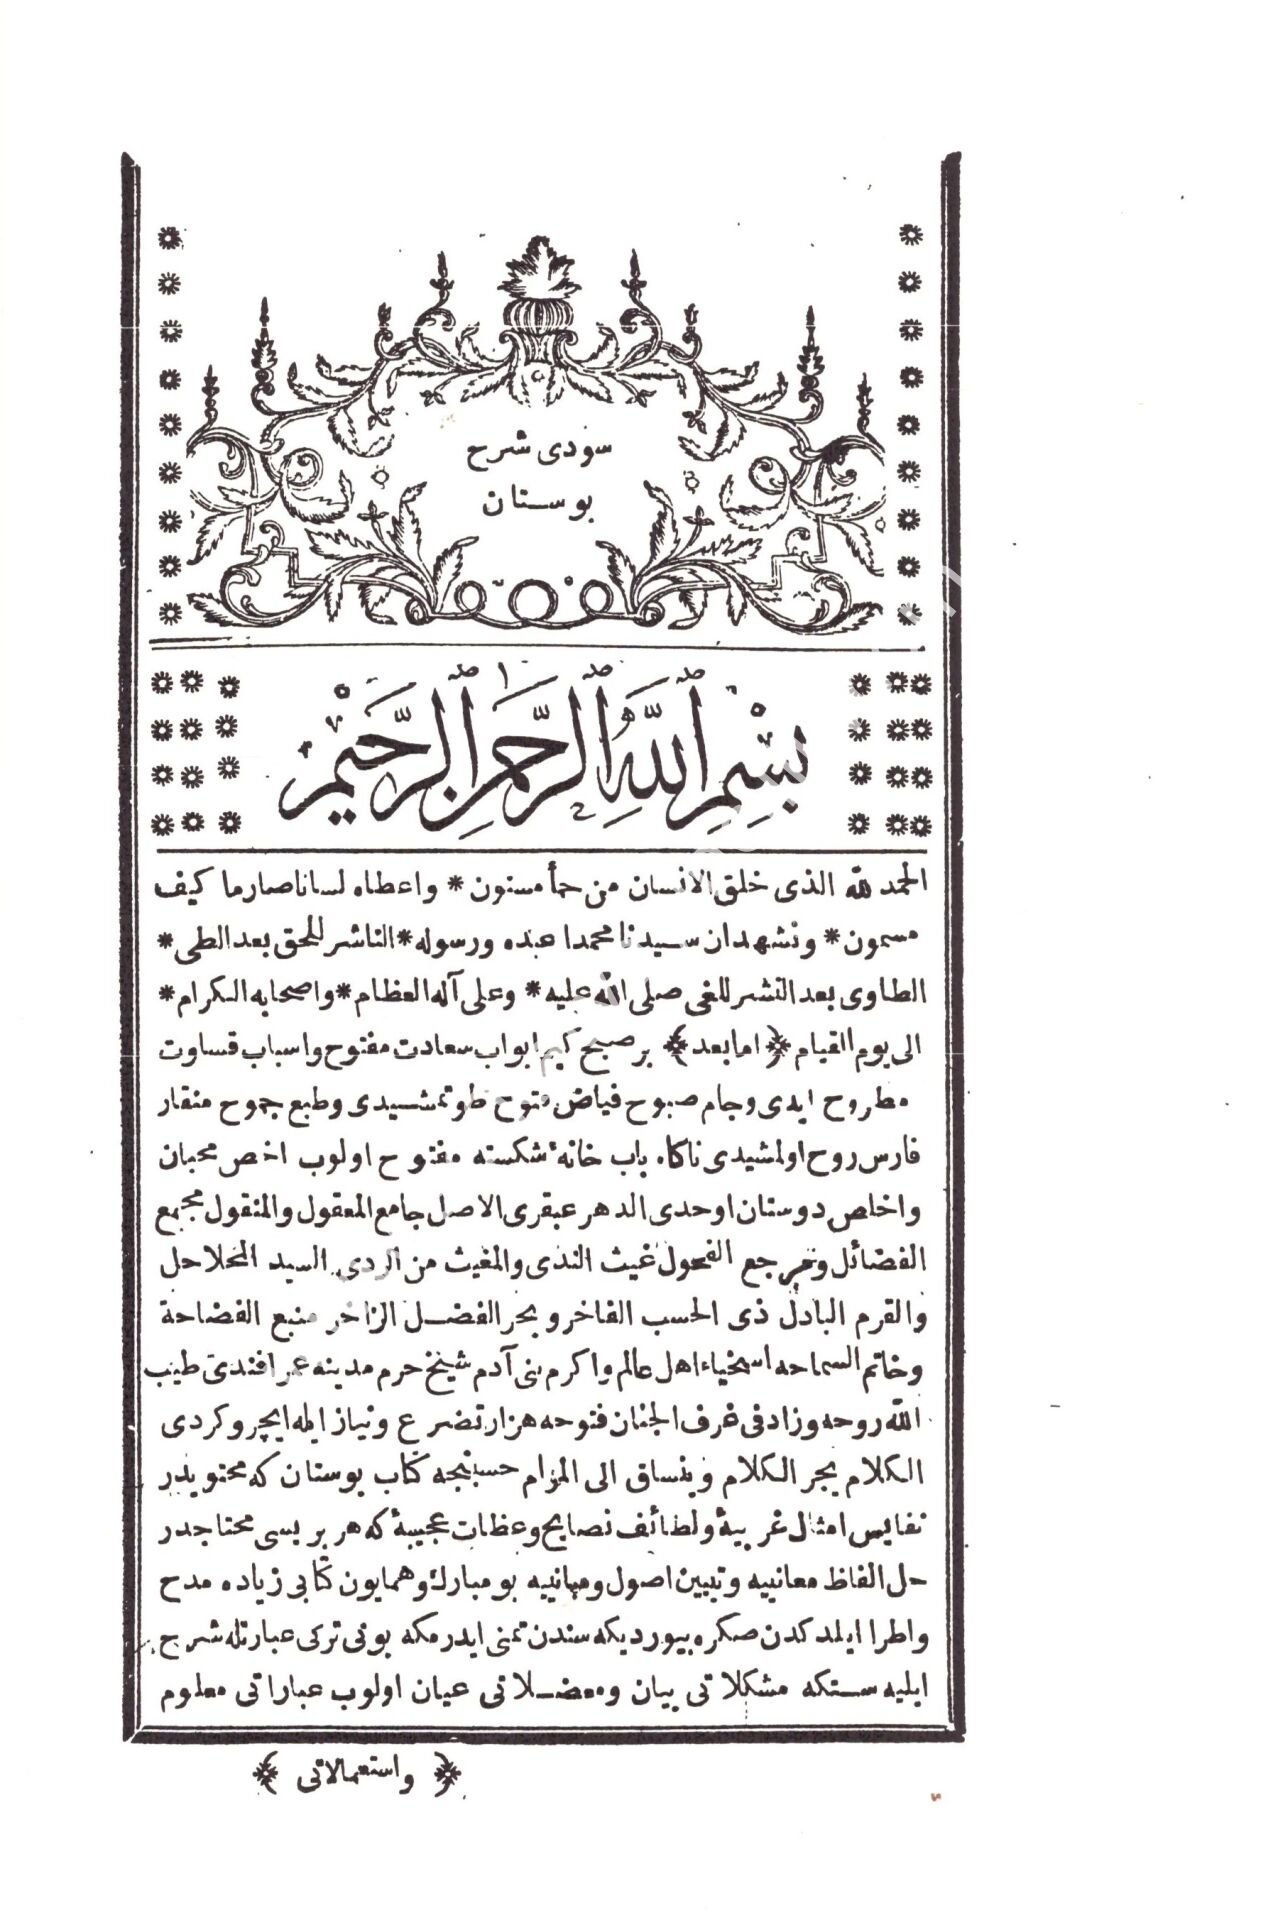 سودی شرح
بوستان
بِسْمِ اللّٰهِ الرَّحْمٰنِ الرَّحِيْمِ
الحمد لله الذی خلق الانسان من حمأ مسنون * واعطاه لسانا صارما کیف
مسمون * ونشهد ان سیدنا محمدا عبده ورسوله * الناشر للحق بعد الطی *
الطاوی بعد النشر للغی صلی الله علیه * وعلی آله العظام * واصحابه الکرام *
الی یوم القیام ﴿ اما بعد ﴾ بر صبح کیم ابواب سعادت مفتوح واسباب قساوت
مطروح ایدی وجام صبوح فیاض فتوح طوتمشیدی وطبع جموح منقار
فارس روح اولمشیدی ناکاه باب خانهٔ شکسته مفتوح اولوب اخص محبان
واخلص دوستان اوحدی الدهر عبقری الاصل جامع المعقول والمنقول مجمع
الفضائل ومرجع الفحول غیث الندی والمغیث من الردی السید الحلاحل
والقرم الباذل ذی الحسب الفاخر وبحر الفضل الزاخر منبع الفصاحة
وخاتم السماحه اسخیاء اهل عالم واکرم بنی آدم شیخ حرم مدینه عمر افندی طیب
الله روحه وزاد فی غرف الجنان فتوحه هزار تضرع ونیاز ایله ایچرو کردی
الکلام یجر الکلام وینساق الی المرام حسبنجه کتاب بوستان که محتویدر
نفایس امثال غریبهٔ ولطائف نصایح وعظات عجیبهٔ که هر بریسی محتاجدر
حل الفاظ معانییه وتبیین اصول ومبانییه بو مبارک وهمایون کتابی زیاده مدح
واطرا ایلدکدن صکره بیوردیکه سندن تمنی ایدرمکه بونی ترکی عبارتله شرح
ایلیه سنکه مشکلاتی بیان ومعضلاتی عیان اولوب عباراتی معلوم
﴿ واستعمالاتی ﴾